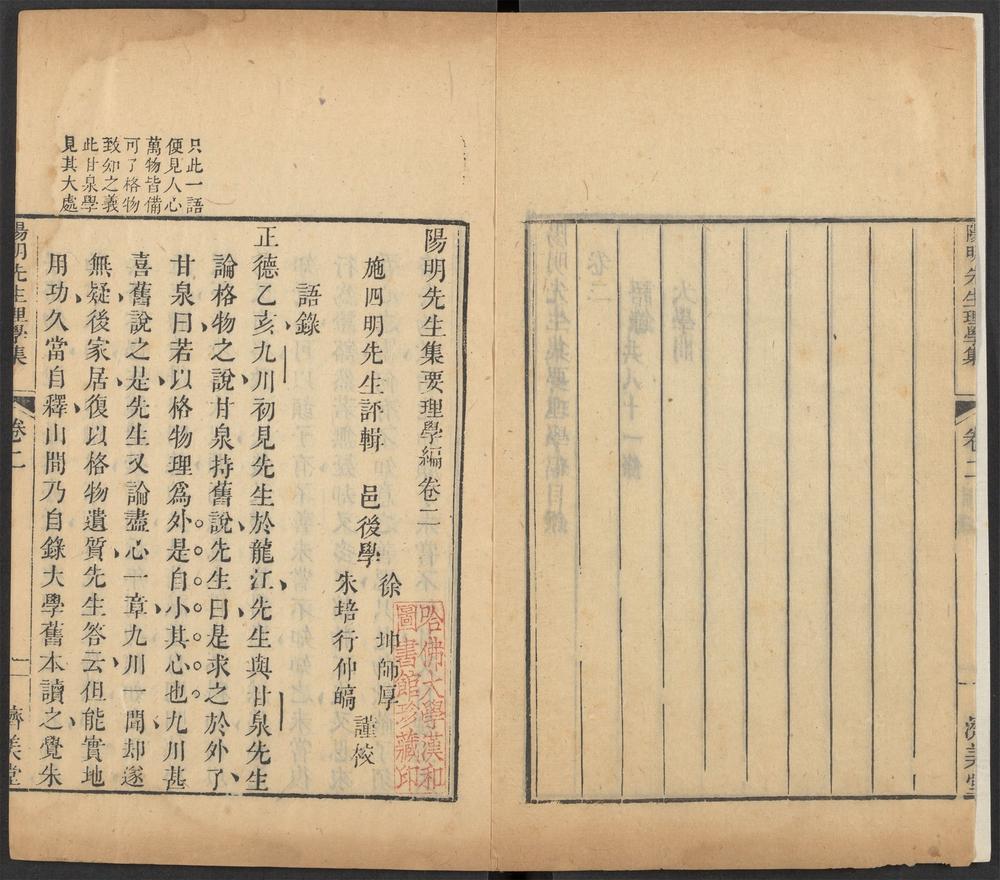 陽明先生理學集
卷二
濟美堂
只此一語
便見人心
萬物皆備
可了格物
致知之義
此甘泉學
見其大處
陽明先生集要理學編卷二
施四明先生評輯 邑後學
徐坤師厚
朱培行仲
謹校
哈佛大學漢和
圖書館珍藏印
語錄
正德乙亥九川初見先生於龍江先生與甘泉先生
論格物之說甘泉持舊說先生曰是求之於外了
甘泉曰若以格物理爲外是自小其心也九川甚
喜舊說之是先生又論盡心一章九川一聞却遂
無疑後家居復以格物遺質先生答云但能實地
用功久當自釋山間乃自錄大學舊本讀之覺朱
陽明先生理學集
卷二
一
濟美堂